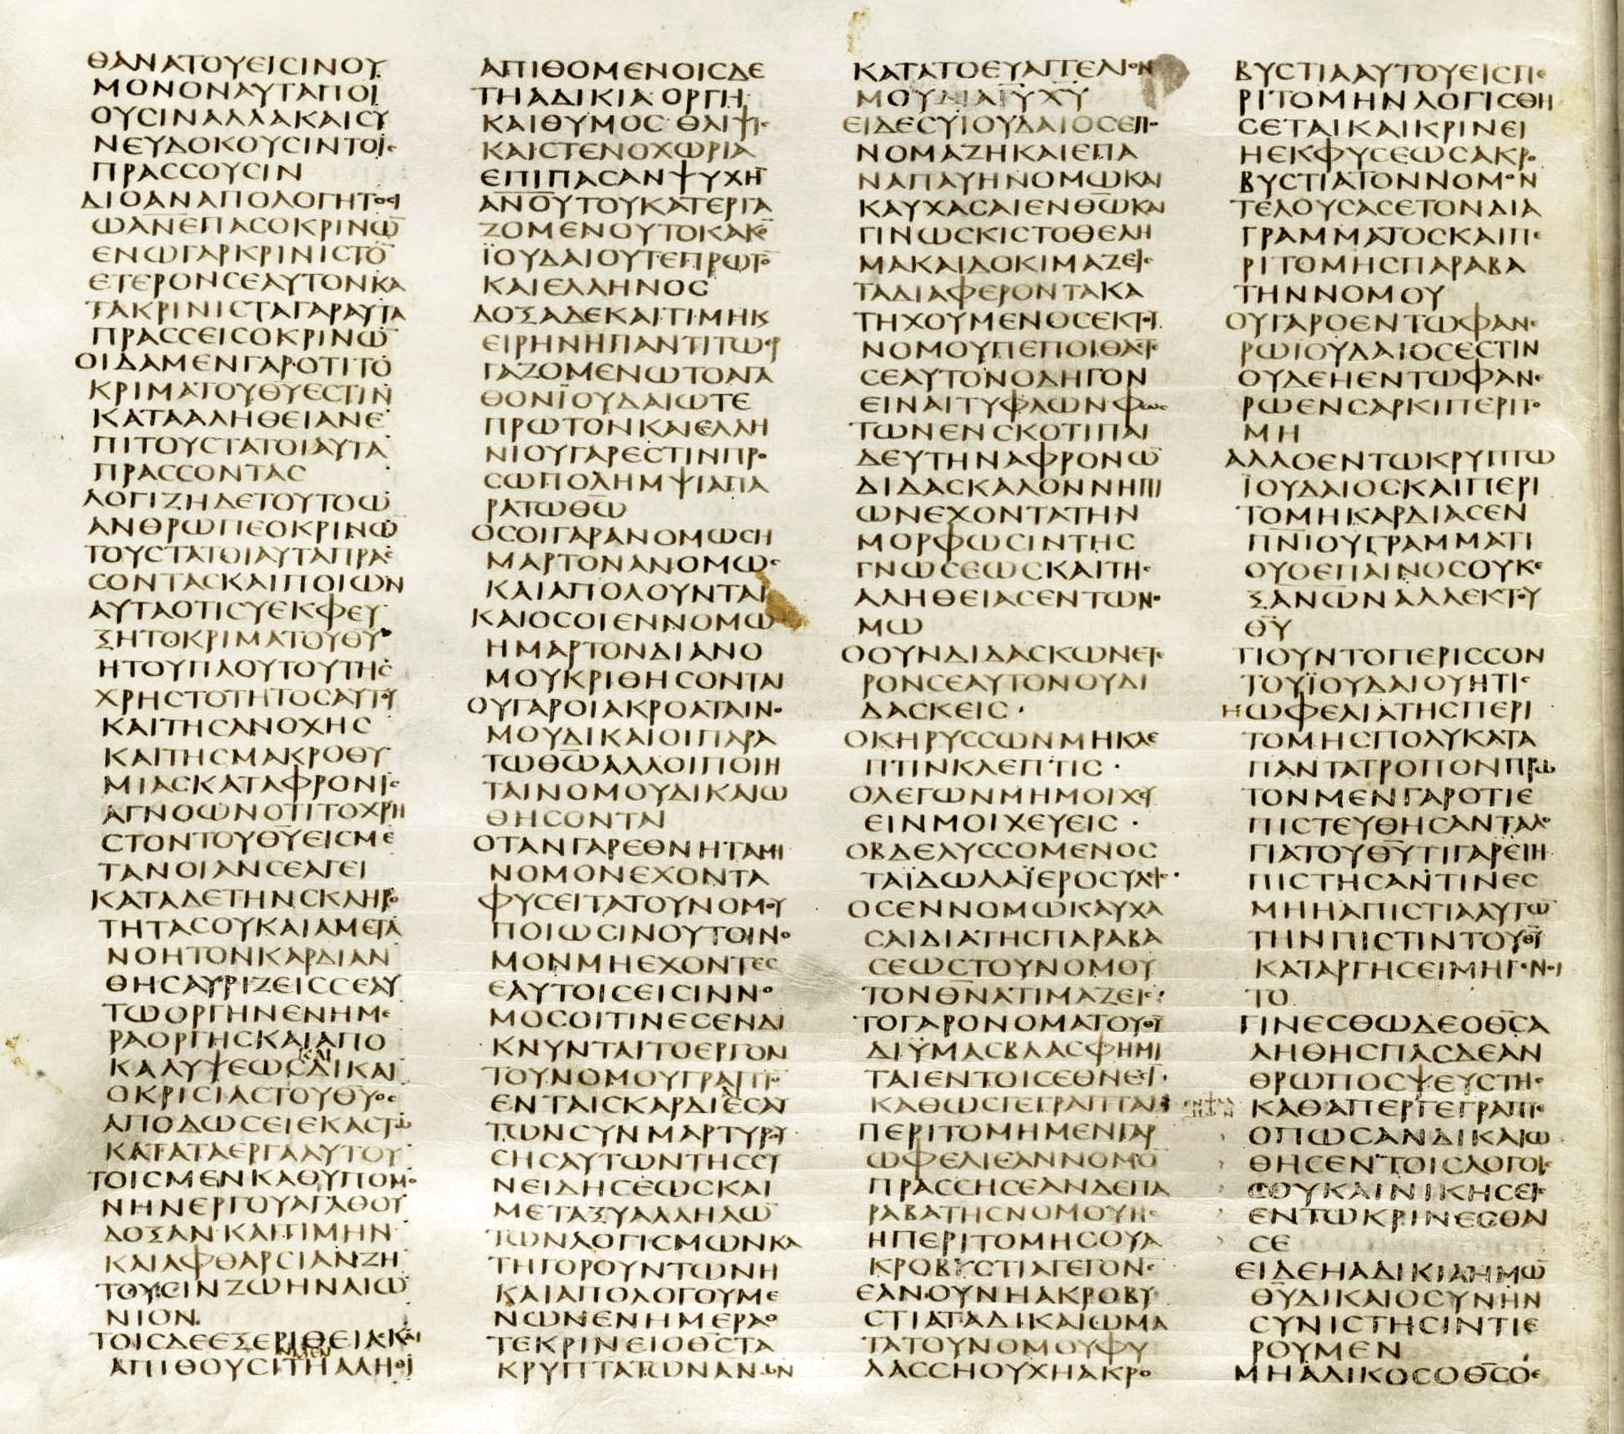 ΘΑΝΑΤΟΥΕΙϹΙΝΟΥ
ΜΟΝΟΝΑΥΤΑΠΟΙ
ΟΥϹΙΝΑΛΛΑΚΑΙϹΥ
ΝΕΥΔΟΚΟΥϹΙΝΤΟΙϹ
ΠΡΑϹϹΟΥϹΙΝ
ΔΙΟΑΝΑΠΟΛΟΓΗΤΟϹΙ
ΩΑΝΕΠΑϹΟΚΡΙΝΩ̅
ΕΝΩΓΑΡΚΡΙΝΙϹΤΟ̅
ΕΤΕΡΟΝϹΕΑΥΤΟΝΚΑ
ΤΑΚΡΙΝΙϹΤΑΓΑΡΑΥΤΑ
ΠΡΑϹϹΕΙϹΟΚΡΙΝΩ̅
ΟΙΔΑΜΕΝΓΑΡΟΤΙΤΟ
ΚΡΙΜΑΤΟΥΘΥ̅ΕϹΤΙΝ
ΚΑΤΑΑΛΗΘΕΙΑΝΕ
ΠΙΤΟΥϹΤΑΤΟΙΑΥΤΑ
ΠΡΑϹϹΟΝΤΑϹ
ΛΟΓΙΖΗΔΕΤΟΥΤΟΩ
ΑΝΘΡΩΠΕΟΚΡΙΝΩ̅
ΤΟΥϹΤΑΤΟΙΑΥΤΑΠΡΑϹ
ϹΟΝΤΑϹΚΑΙΠΟΙΩΝ
ΑΥΤΑΟΤΙϹΥΕΚΦΕΥ
ΞΗΤΟΚΡΙΜΑΤΟΥΘΥ̅
ΗΤΟΥΠΛΟΥΤΟΥΤΗϹ
ΧΡΗϹΤΟΤΗΤΟϹΑΥΤΟΥ
ΚΑΙΤΗϹΑΝΟΧΗϹ
ΚΑΙΤΗϹΜΑΚΡΟΘΥ
ΜΙΑϹΚΑΤΑΦΡΟΝΙϹ
ΑΓΝΟΩΝΟΤΙΤΟΧΡΗ
ϹΤΟΝΤΟΥΘΥ̅ΕΙϹΜΕ
ΤΑΝΟΙΑΝϹΕΑΓΕΙ
ΚΑΤΑΔΕΤΗΝϹΚΛΗΡΟ
ΤΗΤΑϹΟΥΚΑΙΑΜΕΤΑ
ΝΟΗΤΟΝΚΑΡΔΙΑΝ
ΘΗϹΑΥΡΙΖΕΙϹϹΕΑΥ
ΤΩΟΡΓΗΝΕΝΗΜΕ
ΡΑΟΡΓΗϹΚΑΙΑΠΟ
ΚΑΛΥΨΕΩϹΔΙΚΑΙ
ΟΚΡΙϹΙΑϹΤΟΥΘΥ̅ΟϹ
ΑΠΟΔΩϹΕΙΕΚΑϹΤΩ
ΚΑΤΑΤΑΕΡΓΑΑΥΤΟΥ
ΤΟΙϹΜΕΝΚΑΘΥΠΟΜΟ
ΝΗΝΕΡΓΟΥΑΓΑΘΟΥ
ΔΟΞΑΝΚΑΙΤΙΜΗΝ
ΚΑΙΑΦΘΑΡϹΙΑΝΖΗ
ΤΟΥϹΙΝΖΩΗΝΑΙΩ
ΝΙΟΝ
ΤΟΙϹΔΕΕΞΕΡΙΘΕΙΑϹΚΑΙ
ΑΠΙΘΟΥϹΙΤΗΑΛΗΘΙ
ΑΠΙΘΟΜΕΝΟΙϹΔΕ
ΤΗΑΔΙΚΙΑΟΡΓΗ
ΚΑΙΘΥΜΟϹΘΛΙΨΙϹ
ΚΑΙϹΤΕΝΟΧΩΡΙΑ
ΕΠΙΠΑϹΑΝΨΥΧΗ̅
ΑΝ̅Ο̅Υ̅ΤΟΥΚΑΤΕΡΓΑ
ΖΟΜΕΝΟΥΤΟΚΑΚΟ̅
ΪΟΥΔΑΙΟΥΤΕΠΡΩΤΟ̅
ΚΑΙΕΛΛΗΝΟϹ
ΔΟΞΑΔΕΚΑΙΤΙΜΗΚϹ
ΕΙΡΗΝΗΠΑΝΤΙΤΩΕΡ
ΓΑΖΟΜΕΝΩΤΟΑΓΑ
ΘΟΝΪΟΥΔΑΙΩΤΕ
ΠΡΩΤΟΝΚΑΙΕΛΛΗ
ΝΙΟΥΓΑΡΕϹΤΙΝΠΡΟ
ϹΩΠΟΛΗΜΨΙΑΠΑ
ΡΑΤΩΘΩ̅
ΟϹΟΙΓΑΡΑΝΟΜΩϹΗ
ΜΑΡΤΟΝΑΝΟΜΩϹ
ΚΑΙΑΠΟΛΟΥΝΤΑΙ
ΚΑΙΟϹΟΙΕΝΝΟΜΩ
ΗΜΑΡΤΟΝΔΙΑΝΟ
ΜΟΥΚΡΙΘΗϹΟΝΤΑΙ
ΟΥΓΑΡΟΙΑΚΡΟΑΤΑΙΝΟ
ΜΟΥΔΙΚΑΙΟΙΠΑΡΑ
ΤΩΘΩ̅ΑΛΛΟΙΠΟΙΗ
ΤΑΙΝΟΜΟΥΔΙΚΑΙΩ
ΘΗϹΟΝΤΑΙ
ΟΤΑΝΓΑΡΕΘΝΗΤΑΜΗ
ΝΟΜΟΝΕΧΟΝΤΑ
ΦΥϹΕΙΤΑΤΟΥΝΟΜΟΥ
ΠΟΙΩϹΙΝΟΥΤΟΙΝΟ
ΜΟΝΜΗΕΧΟΝΤΕϹ
ΕΑΥΤΟΙϹΕΙϹΙΝΝΟ
ΜΟϹΟΙΤΙΝΕϹΕΝΔΙ
ΚΝΥΝΤΑΙΤΟΕΡΓΟΝ
ΤΟΥΝΟΜΟΥΓΡΑΠΤΟ
ΕΝΤΑΙϹΚΑΡΔΙΕϹΑΥ
ΤΩΝϹΥΝΜΑΡΤΥΡΟΥ
ϹΗϹΑΥΤΩΝΤΗϹϹΥ
ΝΕΙΔΗϹΕΩϹΚΑΙ
ΜΕΤΑΞΥΑΛΛΗΛΩ̅
ΤΩΝΛΟΓΙϹΜΩΝΚΑ
ΤΗΓΟΡΟΥΝΤΩΝΗ
ΚΑΙΑΠΟΛΟΓΟΥΜΕ
ΝΩΝΕΝΗΜΕΡΑΟ
ΤΕΚΡΙΝΕΙΟΘϹ̅ΤΑ
ΚΡΥΠΤΑΤΩΝΑΝΩΝ
ΚΑΤΑΤΟΕΥΑΓΓΕΛΙΟΝ
ΜΟΥΔΙΑΙΥ̅ΧΥ̅
ΕΙΔΕϹΥΙΟΥΔΑΙΟϹΕΠΟ
ΝΟΜΑΖΗΚΑΙΕΠΑ
ΝΑΠΑΥΗΝΟΜΩΚΑΙ
ΚΑΥΧΑϹΑΙΕΝΘΩ̅ΚΑΙ
ΓΙΝΩϹΚΙϹΤΟΘΕΛΗ
ΜΑΚΑΙΔΟΚΙΜΑΖΕΙϹ
ΤΑΔΙΑΦΕΡΟΝΤΑΚΑ
ΤΗΧΟΥΜΕΝΟϹΕΚΤΟΥ
ΝΟΜΟΥΠΕΠΟΙΘΑϹ
ϹΕΑΥΤΟΝΟΔΗΓΟΝ
ΕΙΝΑΙΤΥΦΛΩΝΦΩϹ
ΤΩΝΕΝϹΚΟΤΙΠΑΙ
ΔΕΥΤΗΝΑΦΡΟΝΩ̅
ΔΙΔΑϹΚΑΛΟΝΝΗΠΙ
ΩΝΕΧΟΝΤΑΤΗΝ
ΜΟΡΦΩϹΙΝΤΗϹ
ΓΝΩϹΕΩϹΚΑΙΤΗϹ
ΑΛΗΘΕΙΑϹΕΝΤΩΝΟ
ΜΩ
ΟΟΥΝΔΙΔΑϹΚΩΝΕΤΕ
ΡΟΝϹΕΑΥΤΟΝΟΥΔΙ
ΔΑϹΚΕΙϹ·
ΟΚΗΡΥϹϹΩΝΜΗΚΛΕ
ΠΤΙΝΚΛΕΠΤΙϹ·
ΟΛΕΓΩΝΜΗΜΟΙΧΕΥ
ΕΙΝΜΟΙΧΕΥΕΙϹ·
ΟΒΔΕΛΥϹϹΟΜΕΝΟϹ
ΤΑΪΔΩΛΑΪΕΡΟϹΥΛΙϹ·
ΟϹΕΝΝΟΜΩΚΑΥΧΑ
ϹΑΙΔΙΑΤΗϹΠΑΡΑΒΑ
ϹΕΩϹΤΟΥΝΟΜΟΥ
ΤΟΝΘΝ̅ΑΤΙΜΑΖΕΙϹ
ΤΟΓΑΡΟΝΟΜΑΤΟΥΘΥ̅
ΔΙΫΜΑϹΒΛΑϹΦΗΜΙ
ΤΑΙΕΝΤΟΙϹΕΘΝΕϹΙ
ΚΑΘΩϹΓΕΓΡΑΠΤΑΙ
ΠΕΡΙΤΟΜΗΜΕΝΓΑΡ
ΩΦΕΛΙΕΑΝΝΟΜΟ̅
ΠΡΑϹϹΗϹΕΑΝΔΕΠΑ
ΡΑΒΑΤΗϹΝΟΜΟΥΗϹ
ΗΠΕΡΙΤΟΜΗϹΟΥΑ
ΚΡΟΒΥϹΤΙΑΓΕΓΟΝΕ
ΕΑΝΟΥΝΗΑΚΡΟΒΥ
ϹΤΙΑΤΑΔΙΚΑΙΩΜΑ
ΤΑΤΟΥΝΟΜΟΥΦΥ
ΛΑϹϹΗΟΥΧΗΑΚΡΟ
ΒΥϹΤΙΑΑΥΤΟΥΕΙϹΠΕ
ΡΙΤΟΜΗΝΛΟΓΙϹΘΗ
ϹΕΤΑΙΚΑΙΚΡΙΝΕΙ
ΗΕΚΦΥϹΕΩϹΑΚΡΟ
ΒΥϹΤΙΑΤΟΝΝΟΜΟΝ
ΤΕΛΟΥϹΑϹΕΤΟΝΔΙΑ
ΓΡΑΜΜΑΤΟϹΚΑΙΠΕ
ΡΙΤΟΜΗϹΠΑΡΑΒΑ
ΤΗΝΝΟΜΟΥ
ΟΥΓΑΡΟΕΝΤΩΦΑΝΕ
ΡΩΙΟΥΔΑΙΟϹΕϹΤΙΝ
ΟΥΔΕΗΕΝΤΩΦΑΝΕ
ΡΩΕΝϹΑΡΚΙΠΕΡΙΤΟ
ΜΗ
ΑΛΛΟΕΝΤΩΚΡΥΠΤΩ
ΪΟΥΔΑΙΟϹΚΑΙΠΕΡΙ
ΤΟΜΗΚΑΡΔΙΑϹΕΝ
ΠΝΙ̅ΟΥΓΡΑΜΜΑΤΙ
ΟΥΟΕΠΑΙΝΟϹΟΥΚΕ
ΞΑΝΩΝΑΛΛΕΚΤΟΥ
ΘΥ̅
ΤΙΟΥΝΤΟΠΕΡΙϹϹΟΝ
ΤΟΥΪΟΥΔΑΙΟΥΗΤΙϹ
ΗΩΦΕΛΙΑΤΗϹΠΕΡΙ
ΤΟΜΗϹΠΟΛΥΚΑΤΑ
ΠΑΝΤΑΤΡΟΠΟΝΠΡΩ
ΤΟΝΜΕΝΓΑΡΟΤΙΕ
ΠΙϹΤΕΥΘΗϹΑΝΤΑΛΟ
ΓΙΑΤΟΥΘΥ̅ΤΙΓΑΡΕΙΗ
ΠΙϹΤΗϹΑΝΤΙΝΕϹ
ΜΗΗΑΠΙϹΤΙΑΑΥΤΩ̅
ΤΗΝΠΙϹΤΙΝΤΟΥΘΥ̅
ΚΑΤΑΡΓΗϹΕΙΜΗΓΕΝΟΙ
ΤΟ
ΓΙΝΕϹΘΩΔΕΟΘϹ̅Α
ΛΗΘΗϹΠΑϹΔΕΑΝ
ΘΡΩΠΟϹΨΕΥϹΤΗϹ
ΚΑΘΑΠΕΡΓΕΓΡΑΠΤΕ
ΟΠΩϹΑΝΔΙΚΑΙΩ
ΘΗϹΕΝΤΟΙϹΛΟΓΟΙϹ
ϹΟΥΚΑΙΝΙΚΗϹΕΙϹ
ΕΝΤΩΚΡΙΝΕϹΘΑΙ
ϹΕ
ΕΙΔΕΗΑΔΙΚΙΑΗΜΩ̅
ΘΥ̅ΔΙΚΑΙΟϹΥΝΗΝ
ϹΥΝΙϹΤΗϹΙΝΤΙΕ
ΡΟΥΜΕΝ
ΜΗΑΔΙΚΟϹΟΘϹ̅ΟΕ